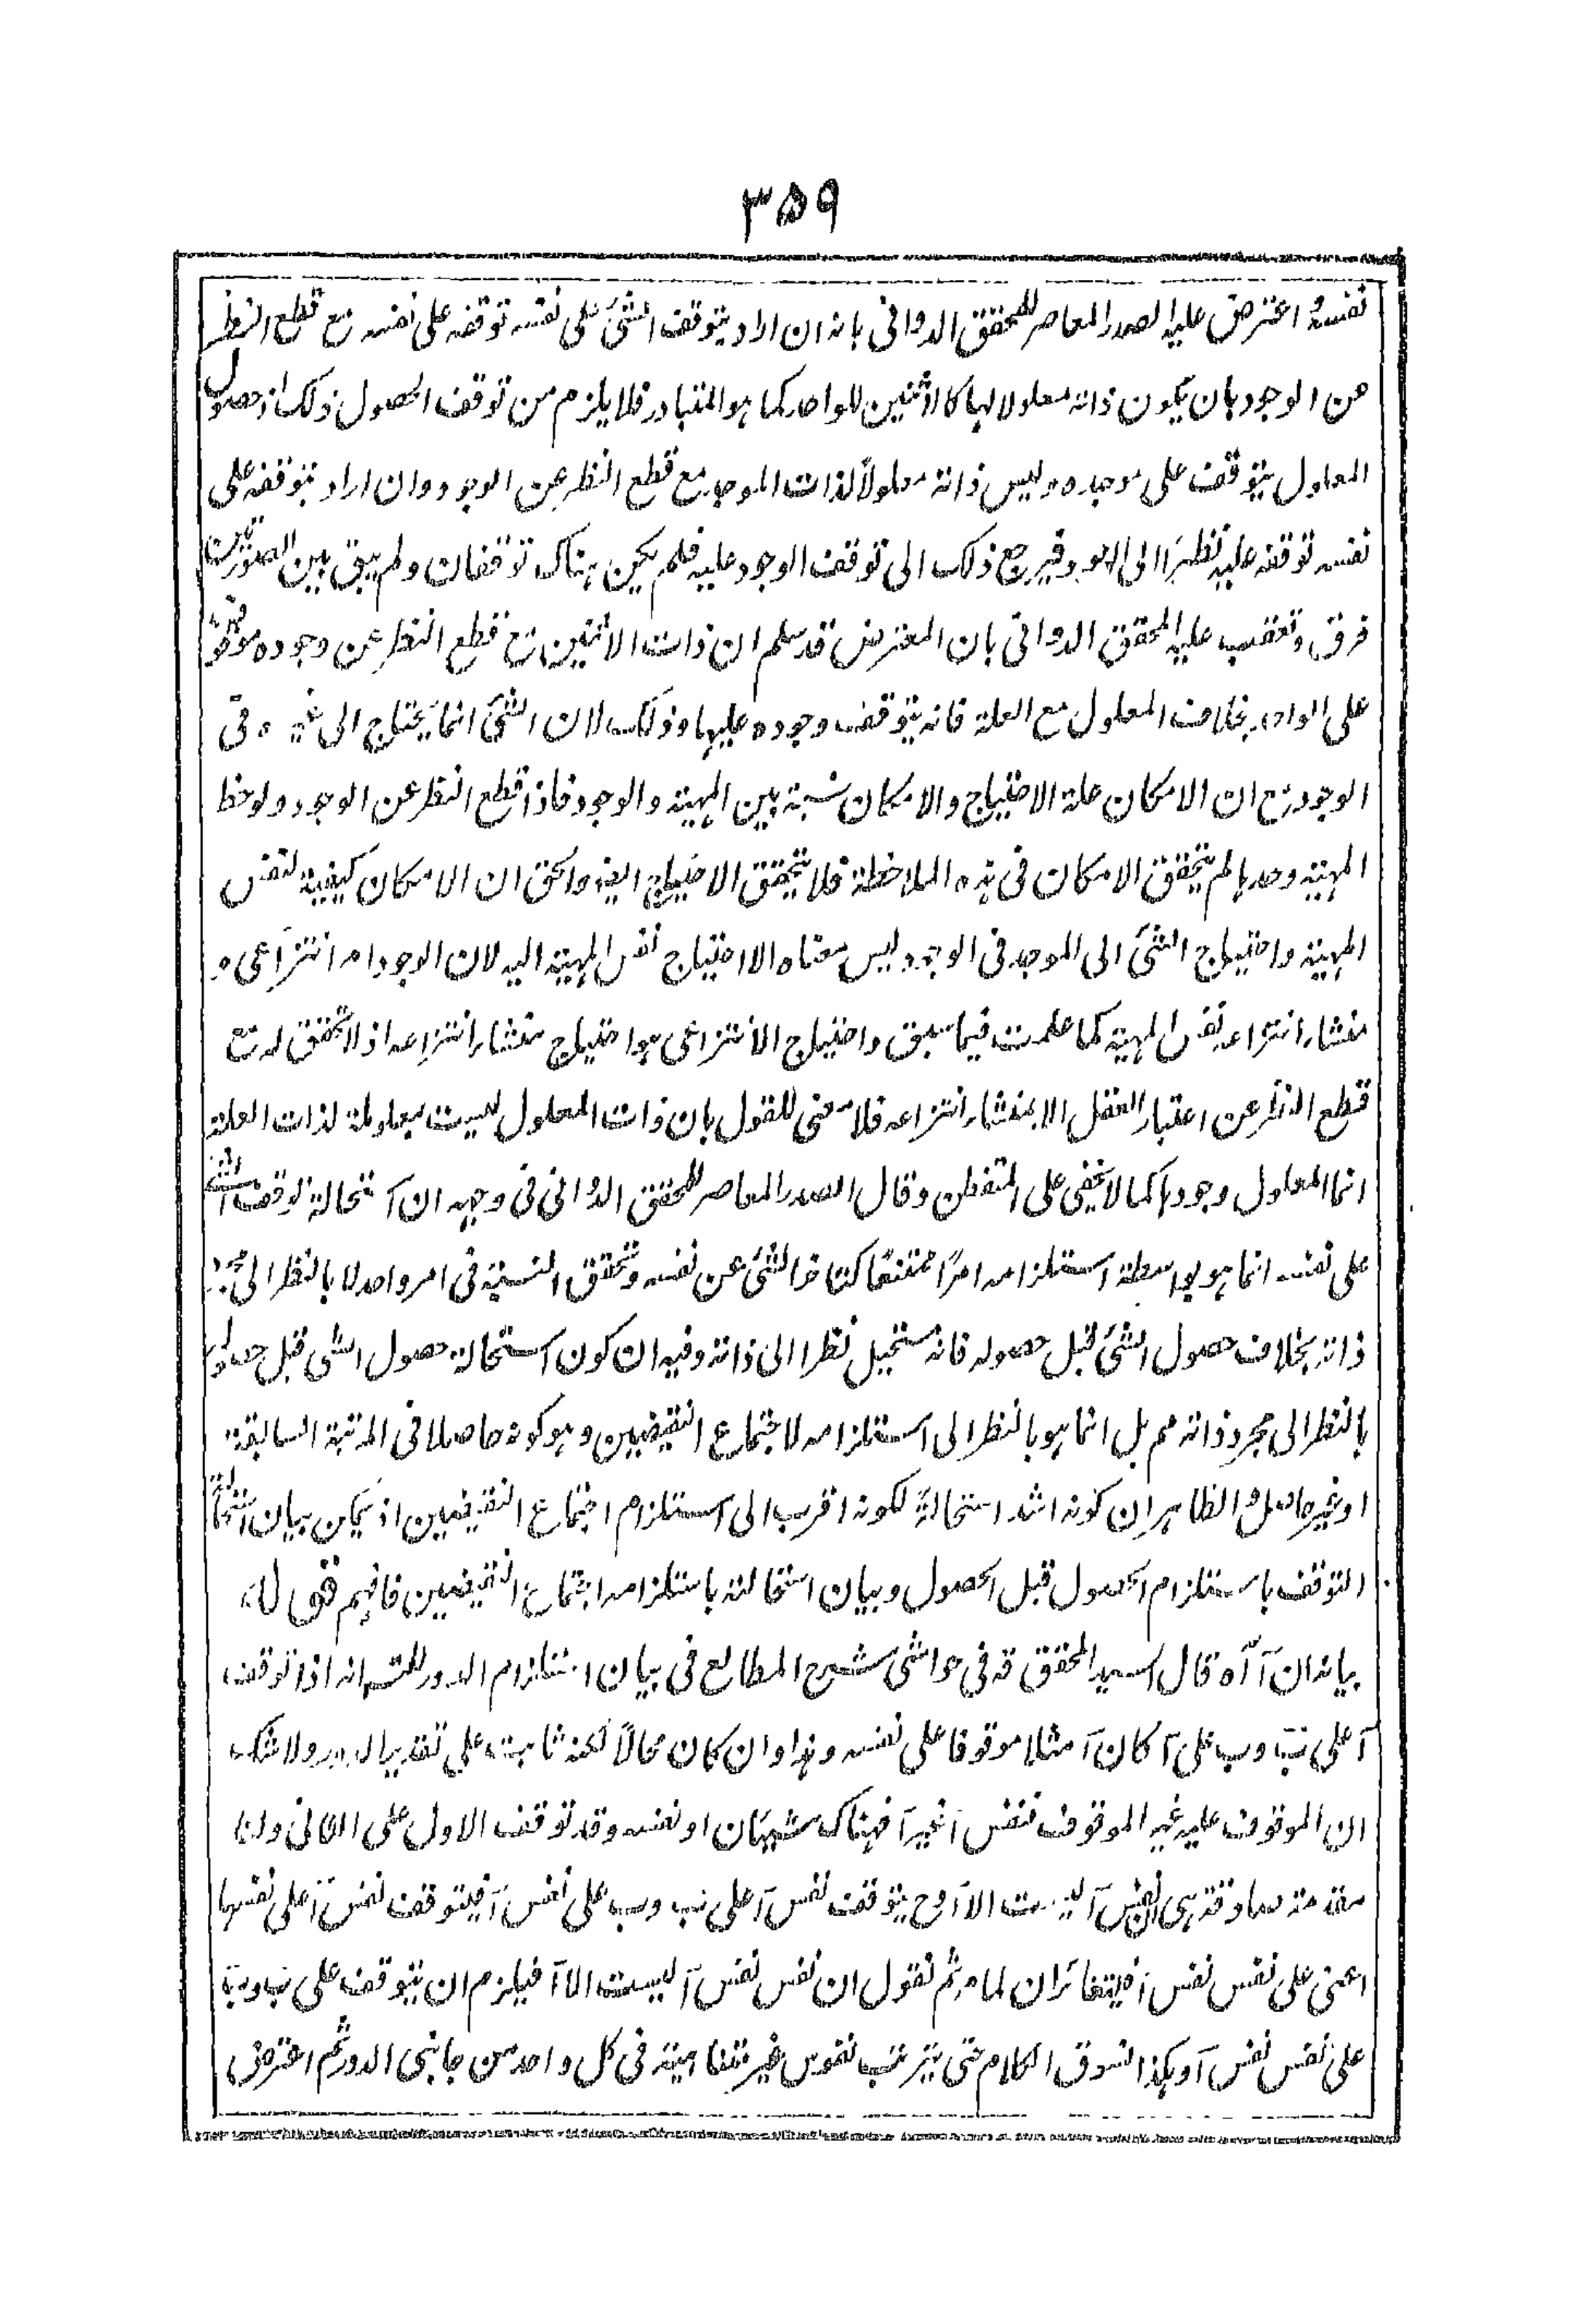 ٣٥٩
نفسه و اعترض عليه الصدر المعاصر للمحقق الدوانى بانه ان اراد بتوقف الشئ على نفسه توقفه على نفسه مع قطع النظر
عن الوجود بان يكون ذاته معلولا لها كالاثنين للواحد كما هو المتبادر فلا يلزم من توقف الحصول ذلك اذ حصول
المعلول يتوقف على موجده وليس ذاته معلولاً لذات الموجد مع قطع النظر عن الوجود وان اراد بتوقفه على
نفسه توقفه عليه نظراً الى الوجود فيرجع ذلك الى توقف الوجود عليه فلم يكن هناك توقفان ولم يبق بين الصورتين
فرق وتعقب عليه المحقق الدوانى بان المعترض قد سلم ان ذات الاثنين مع قطع النظر عن وجوده موقوفة
على الواحد بخلاف المعلول مع العلة فانه يتوقف وجوده عليها وذلك لان الشئ انما يحتاج الى غيره فى
الوجود مع ان الامكان علة الاحتياج والامكان نسبة بين المهية والوجود فاذا قطع النظر عن الوجود ولوحظ
المهية وحدها لم يتحقق الامكان فى هذه الملاحظة فلا يتحقق الاحتياج ايضا والحق ان الامكان كيفية لنفس
المهية واحتياج الشئ الى الموجد فى الوجود ليس معناه الا احتياج نفس المهية اليه لان الوجود امر انتزاعى و
منشأ انتزاعه نفس المهية كما علمت فيما سبق واحتياج الانتزاعى هو احتياج منشأ انتزاعه اذ لا تحقق له مع
قطع النظر عن اعتبار العقل الا بمنشأ انتزاعه فلا معنى للقول بان ذات المعلول ليست بمعلولة لذات العلة
انما المعلول وجودها كما لا يخفى على المتفطن وقال الصدر المعاصر للمحقق الدوانى فى وجهه ان استحالة توقف الشئ
على نفسه انما هو بواسطة استلزامه امراً ممتنعاً كتاخر الشئ عن نفسه وتحقق النسبة فى امر واحد لا بالنظر الى مجرد
ذاته بخلاف حصول الشئ قبل حصوله فانه مستحيل نظرا الى ذاته وفيه ان كون استحالة حصول الشى قبل حصوله
بالنظر الى مجرد ذاته مم بل انما هو بالنظر الى استلزامه لاجتماع النقيضين وهو كونه حاصلا فى المرتبة السابقة
او غير حاصل و الظاهر ان كونه اشد استحالةً لكونه اقرب الى استلزام اجتماع النقيضين اذ يمكن بيان استحالة
التوقف باستلزام الحصول قبل الحصول وبيان استحالته باستلزامه اجتماع النقيضين فافهم قوله
بيانه ان آ آه قال السيد المحقق قه فى حواشى شرح المطالع فى بيان استلزام الدور للتس انه اذا توقف
آ على ب وب على آ كان آ مثلا موقوفا على نفسه وهذا وان كان محالاً لكنه ثابت على تقدير الدور ولا شك
ان الموقوف عليه غير الموقوف فنفس آ غير آ فهناك شيئان ا ونفسه وقد توقف الاول على الثانى ولنا
مقدمة صادقة هى ان نفس آ ليست الا آ وح يتوقف نفس آ على ب وب على نفس آ فيتوقف نفس آ على نفسها
اعنى على نفس نفس آ فيتغائران لما مر ثم نقول ان نفس نفس آ ليست الا آ فيلزم ان يتوقف على ب وب
على نفس نفس آ وهكذا نسوق الكلام حتى يترتب نفوس غير متناهية فى كل واحد من جانبى الدور ثم اعترض